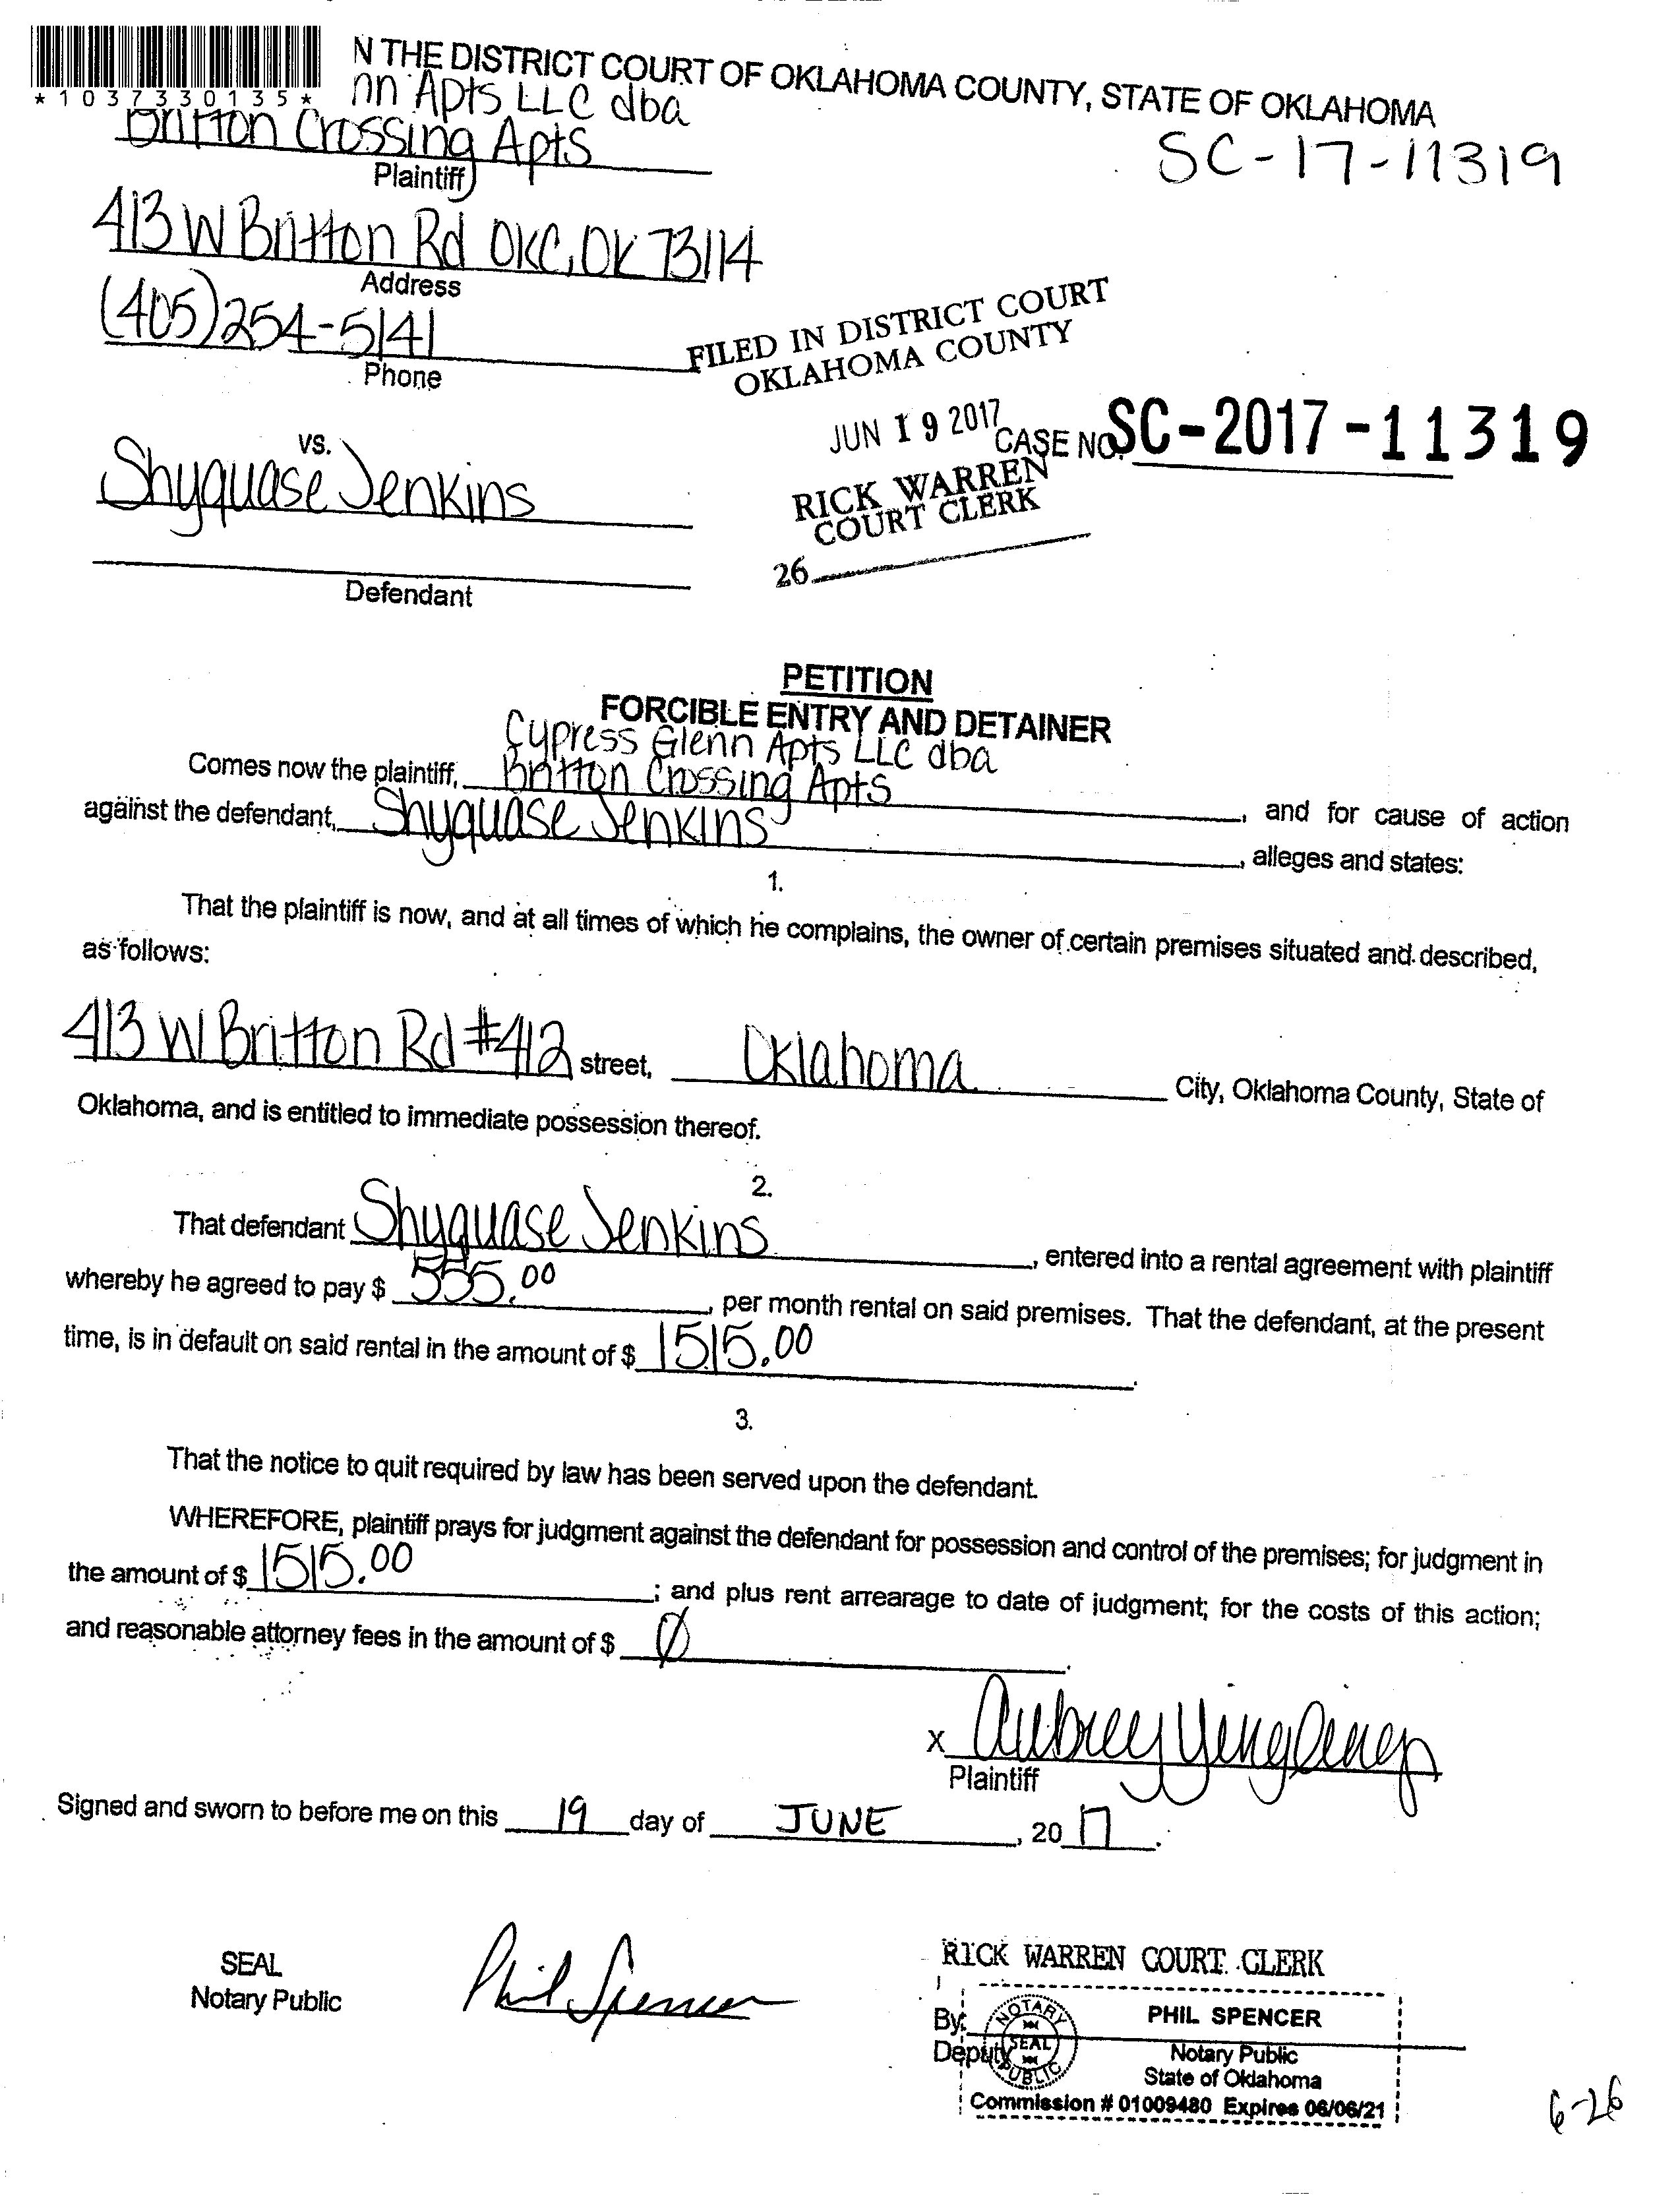 *1037330135*
N THE DISTRICT COURT OF OKLAHOMA COUNTY, STATE OF OKLAHOMA
nn Apts LLC dba
Britton Crossing Apts
SC-17-11319
Plaintiff
413 W Britton Rd OKC, OK 73114
Address
(405)254-5141
Phone
FILED IN DISTRICT COURT
OKLAHOMA COUNTY
JUN 19 2017
CASE NO. SC-2017-11319
RICK WARREN
COURT CLERK
26
vs.
Shyquase Jenkins
Defendant
PETITION
FORCIBLE ENTRY AND DETAINER
Cypress Glenn Apts LLC dba
Comes now the plaintiff, Britton Crossing Apts, and for cause of action
against the defendant, Shyquase Jenkins, alleges and states:
1.
That the plaintiff is now, and at all times of which he complains, the owner of certain premises situated and described,
as follows:
413 W Britton Rd #412 street, Oklahoma City, Oklahoma County, State of
Oklahoma, and is entitled to immediate possession thereof.
2.
That defendant Shyquase Jenkins, entered into a rental agreement with plaintiff
whereby he agreed to pay $ 555.00, per month rental on said premises. That the defendant, at the present
time, is in default on said rental in the amount of $ 1515.00.
3.
That the notice to quit required by law has been served upon the defendant.
WHEREFORE, plaintiff prays for judgment against the defendant for possession and control of the premises; for judgment in
the amount of $ 1515.00; and plus rent arrearage to date of judgment; for the costs of this action;
and reasonable attorney fees in the amount of $ Ø.
x Aubrey Yinglinep
Plaintiff
Signed and sworn to before me on this 19 day of JUNE, 2017.
SEAL
Notary Public
Phil Spencer
RICK WARREN COURT CLERK
By:
Deputy
NOTARY
SEAL
PUBLIC
PHIL SPENCER
Notary Public
State of Oklahoma
Commission # 01009480 Expires 06/06/21
6-26